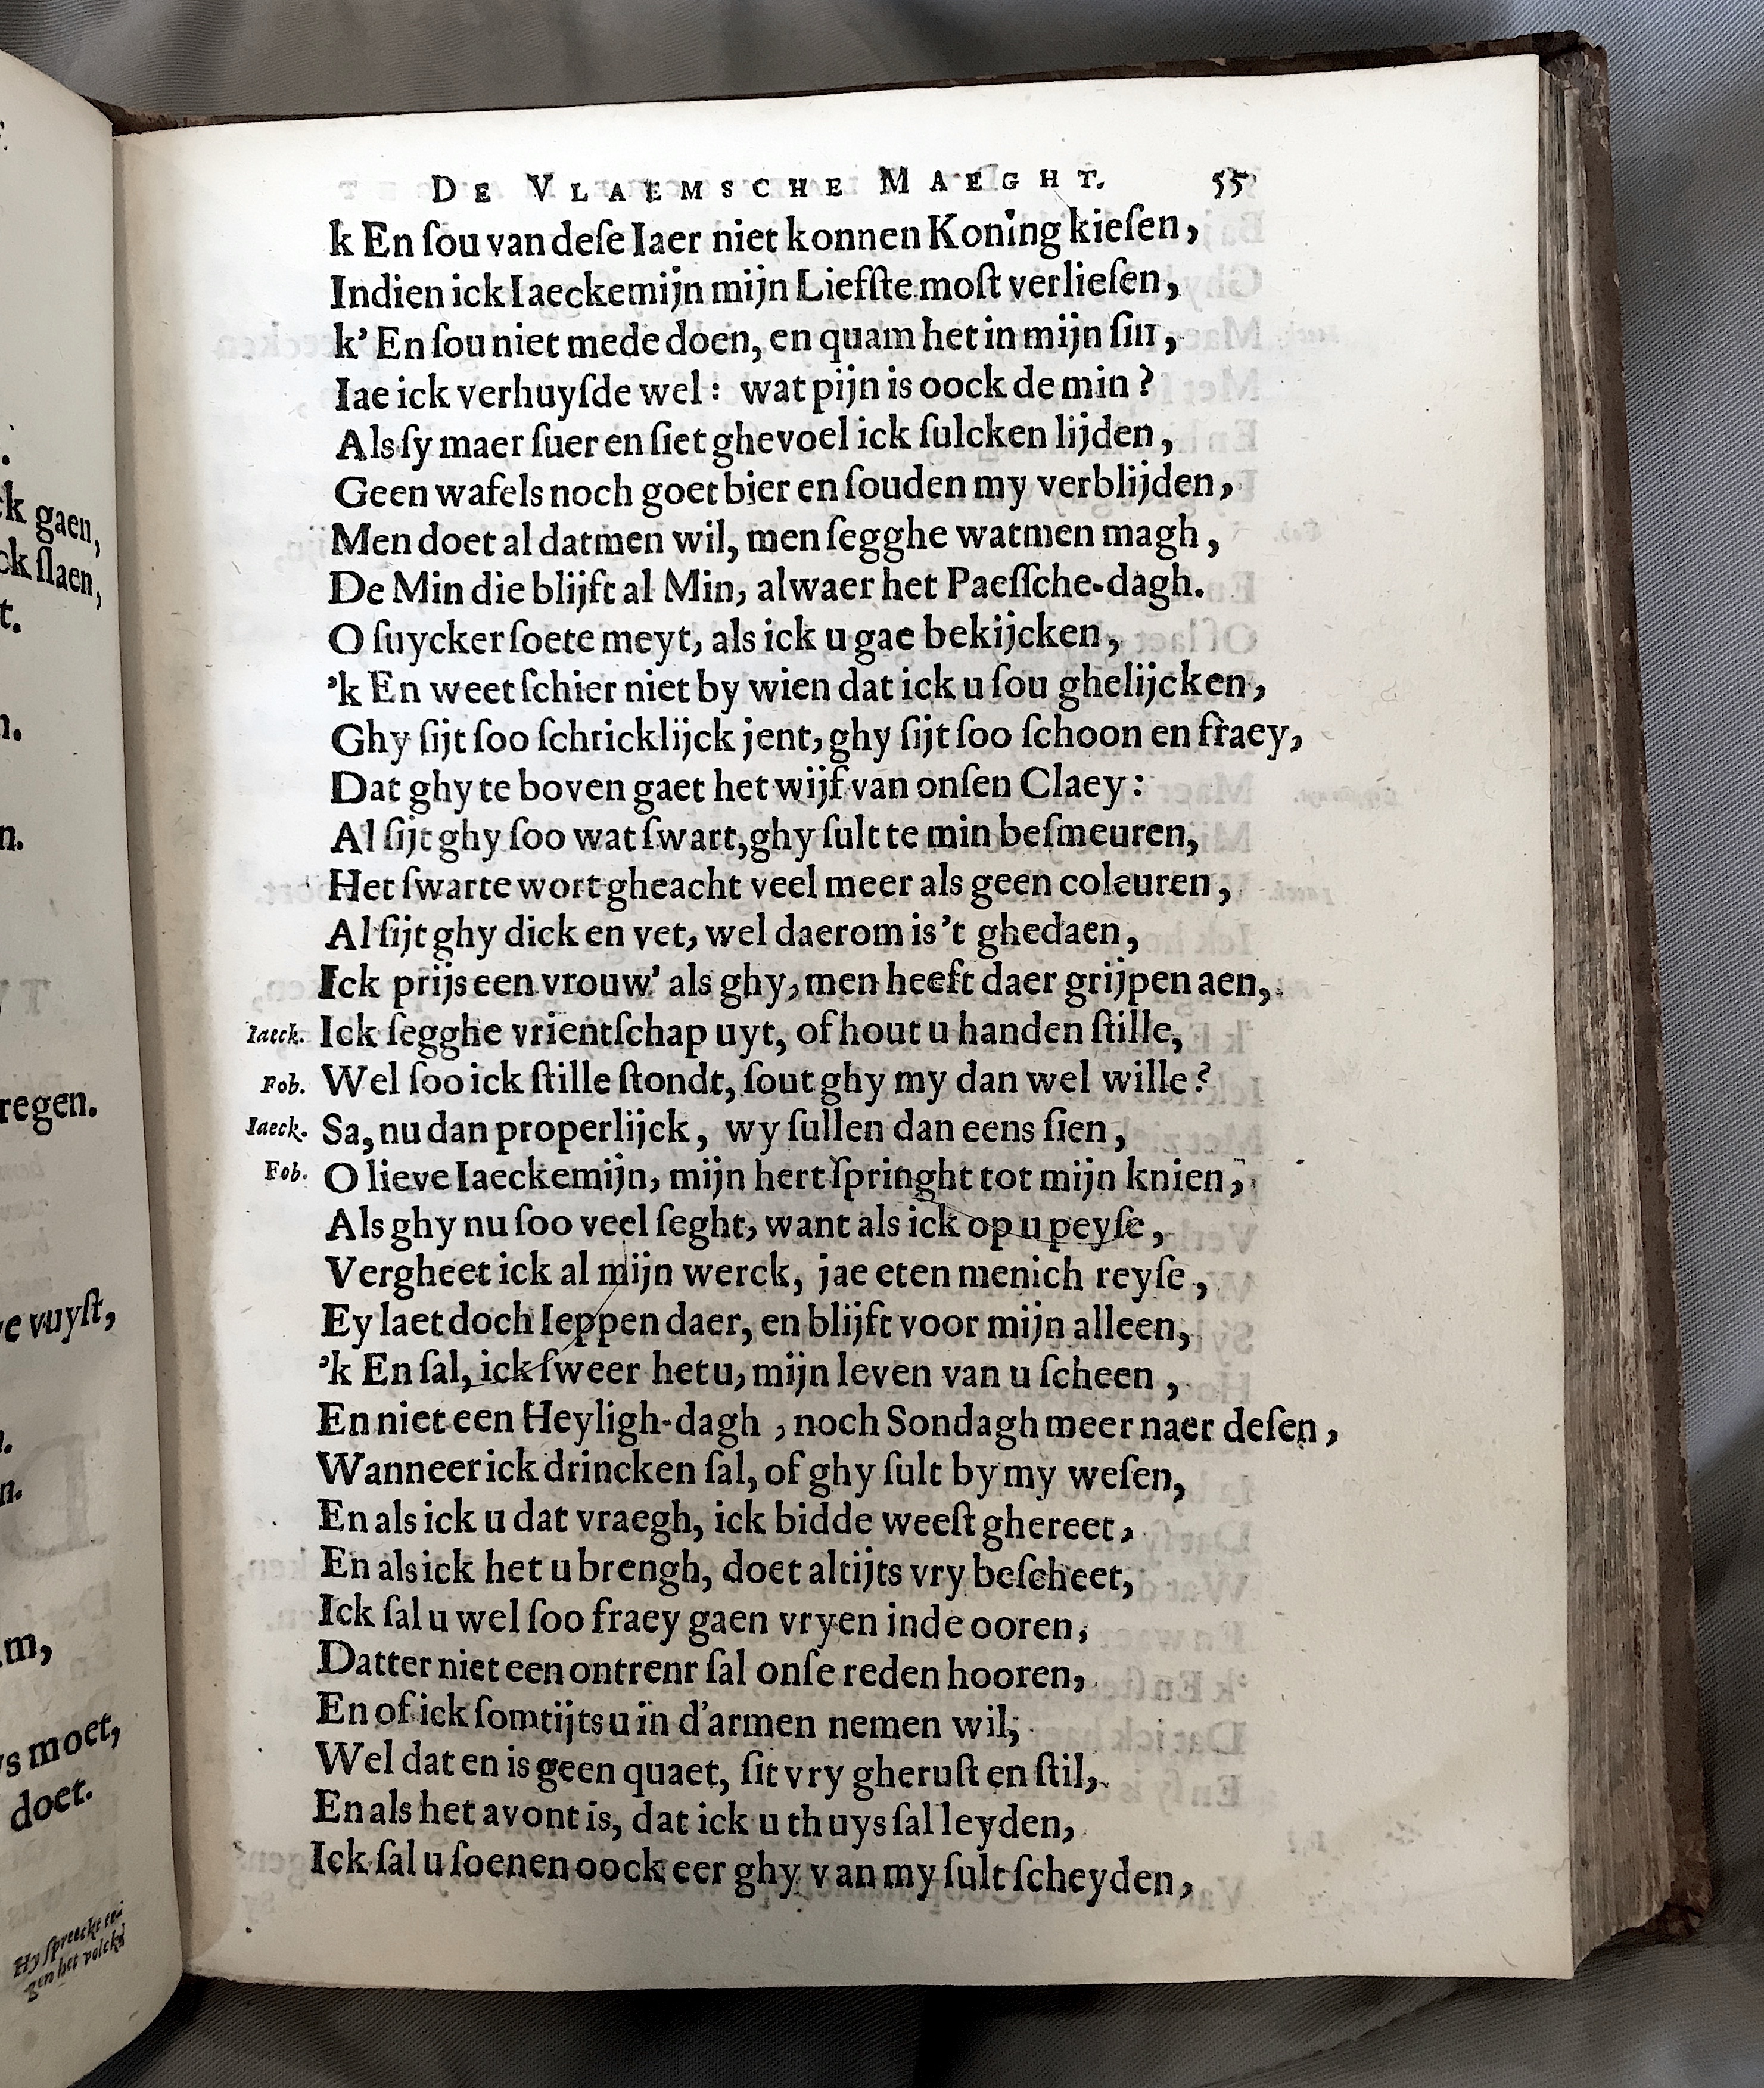 DE VLAEMSCHE MAEGHT. 55
k En ſou van deſe Iaer niet konnen Koning kieſen,
Indien ick Iaeckemijn mijn Liefſte moſt verlieſen,
k' En ſou niet mede doen, en quam het in mijn ſin,
Iae ick verhuyſde wel: wat pijn is oock de min?
Als ſy maer ſuer en ſiet ghevoel ick ſulcken lijden,
Geen wafels noch goet bier en ſouden my verblijden,
Men doet al datmen wil, men ſegghe watmen magh,
De Min die blijft al Min, al waer het Paeſſche-dagh.
O ſuycker ſoete meyt, als ick u gae bekijcken,
'k En weet ſchier niet by wien dat ick u ſou ghelijcken,
Ghy ſijt ſoo ſchricklijck jent, ghy ſijt ſoo ſchoon en fraey,
Dat ghy te boven gaet het wijf van onſen Claey:
Al ſijt ghy ſoo wat ſwart, ghy ſult te min beſmeuren,
Het ſwarte wort gheacht veel meer als geen coleuren,
Al ſijt ghy dick en vet, wel daerom is 't ghedaen,
Ick prijs een vrouw' als ghy, men heeft daer grijpen aen,
Iaeck. Ick ſegghe vrientſchap uyt, of hout u handen ſtille,
Fob. Wel ſoo ick ſtille ſtondt, ſout ghy my dan wel wille?
Iaeck. Sa, nu dan properlijck, wy ſullen dan eens ſien,
Fob. O lieve Iaeckemijn, mijn hert ſpringht tot mijn knien,
Als ghy nu ſoo veel ſeght, want als ick op u peyſe,
Vergheet ick al mijn werck, jae eten menich reyſe,
Ey laet doch Ieppen daer, en blijft voor mijn alleen,
'k En ſal, ick ſweer het u, mijn leven van u ſcheen,
En niet een Heyligh-dagh, noch Sondagh meer naer deſen,
Wanneer ick drincken ſal, of ghy ſult by my weſen,
En als ick u dat vraegh, ick bidde weeſt ghereet,
En als ick het u brengh, doet altijts vry beſcheet,
Ick ſal u wel ſoo fraey gaen vryen inde ooren,
Datter niet een ontrenr ſal onſe reden hooren,
En of ick ſomtijts u in d'armen nemen wil,
Wel dat en is geen quaet, ſit vry gheruſt en ſtil,
En als het avont is, dat ick u thuys ſal leyden,
Ick ſal u ſoenen oock eer ghy van my ſult ſcheyden,
k gaen,
ck ſlaen,
t.
n.
n.
regen.
e vuyſt,
n.
m,
s moet,
doet.
Hy ſpreeckt te-
gen het volck.